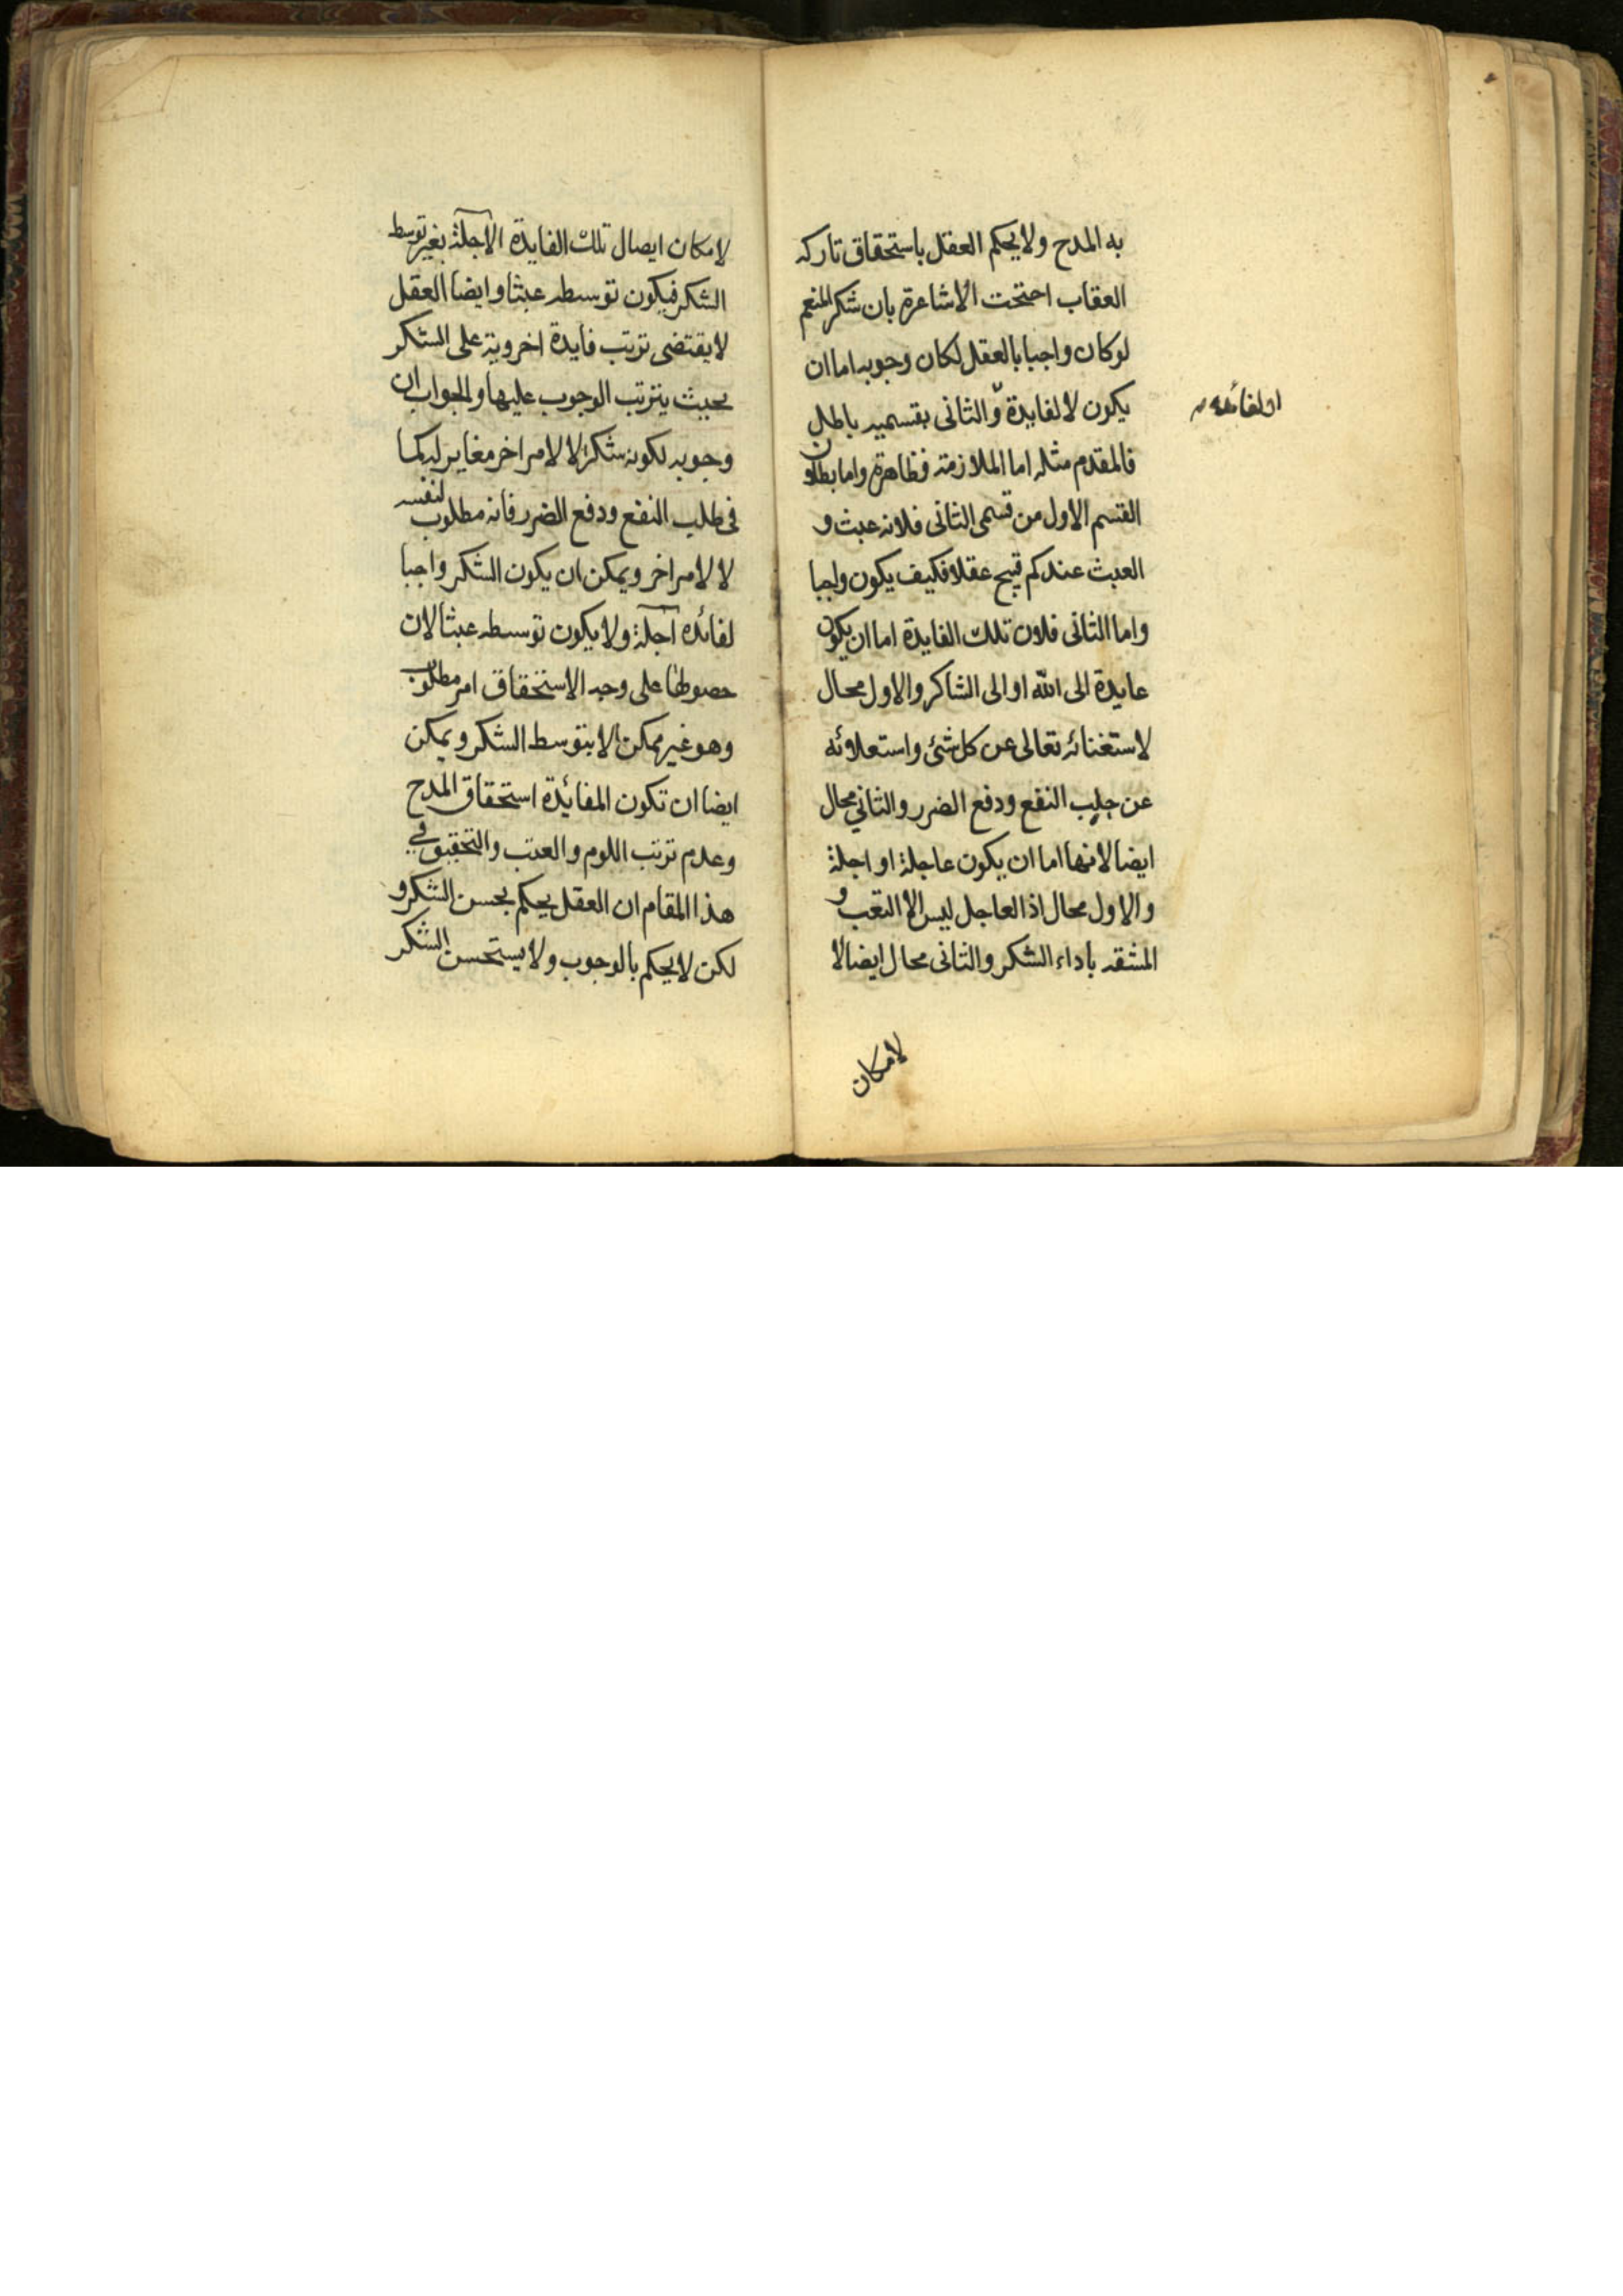 به المدح ولا يحكم العقل باستحقاق تاركه
العقاب احتجت الاشاعرة بان شكر المنعم
لو كان واجبا بالعقل لكان وجوبه اما ان
يكون لا لفايدة والثانى بقسميه باطل
او لفائده
فالمقدم مثله اما الملازمة فظاهرة واما بطلان
القسم الاول من قسمى الثانى فلانه عبث و
العبث عندكم قبيح عقلا فكيف يكون واجبا
واما الثانى فلان تلك الفايدة اما ان يكون
عايدة الى الله او الى الشاكر والاول محال
لاستغنائه تعالى عن كل شئ واستعلائه
عن جلب النفع ودفع الضرر والثاني محال
ايضا لانها اما ان يكون عاجلة او اجلة
والاول محال اذ العاجل ليس الا التعب و
المشقه باداء الشكر والثانى محال ايضا لا
لامكان
لامكان ايصال تلك الفايدة الآجلة بغير توسط
الشكر فيكون توسطه عبثا وايضا العقل
لا يقتضى ترتب فايدة اخروية على الشكر
بحيث يترتب الوجوب عليها والجواب ان
وجوبه لكونه شكرا لا لامر اخر مغاير له كما
فى طلب النفع ودفع الضرر فانه مطلوب لنفسه
لا لامر اخر ويمكن ان يكون الشكر واجبا
لفائده آجلة ولا يكون توسطه عبثا لان
حصولها على وجه الاستحقاق امر مطلوب
وهو غير ممكن الا بتوسط الشكر ويمكن
ايضا ان تكون الفائدة استحقاق المدح
وعدم ترتب اللوم والعتب والتحقيق في
هذا المقام ان العقل يحكم بحسن الشكر و
لكن لا يحكم بالوجوب ولا يستحسن الشكر